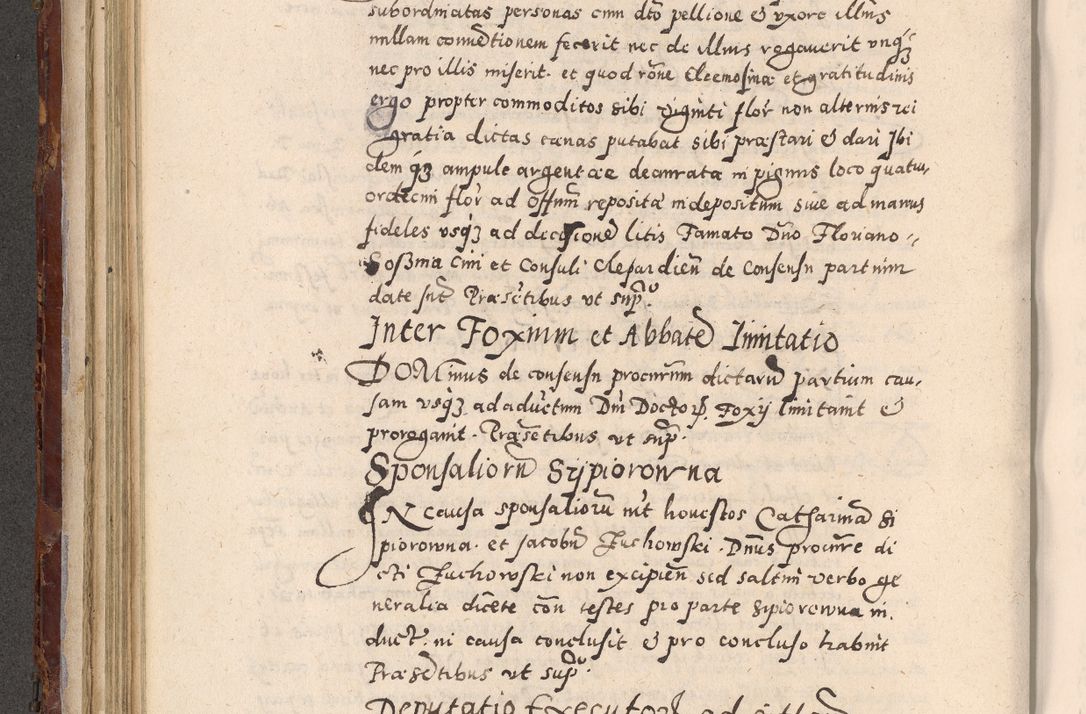 subordinatas personas cum dto pellione & uxore illius
nullam conventionem fecerit nec de illius rogaverit unqz
nec pro illis miserit. et quod rõne Eleemosinæ et gratitudinis
ergo propter commoditos sibi viginti flor non alternis rei
gratia dictas cænas putabat sibi præstari & dari Ibi
dem qz ampule argenteæ deaurata in pignus loco quatu,
ordecim flor ad Offium reposita in depositum sive ad manus
fideles usqz ad decisione litis Famato Dno Floriano
Soszma Civi et Consuli Clepardien de Consensu partium
date sut Præsetibus ut sup.
Inter Foxium et Abbate Limitatio
DOMinus de consensu procurm dictaru partium cau,
sam usqz ad aductum Dni Doctor Foxij limitavit &
prorogavit. Præsetibus ut sup.
Sponsalioru Sijpiorowna
IN causa sponsalioru int honestos Catharina Si
piorowna. et Jacobu Zuchowski. Dnus procure di
cti Zuchowski non excipien sed saltim verbo ge
neralia dicete con testes pro parte Sipiorowna in,
duct. in causa conclusit & pro concluso habuit
Præsetibus ut sup.
Deputatio Executor ad